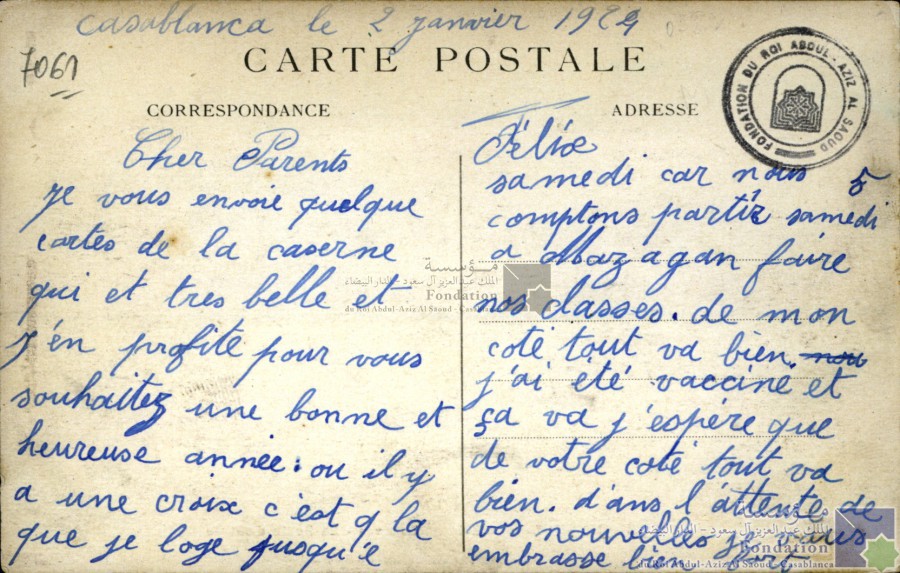 Casablanca le 2 janvier 192
7061
CARTE POSTALE
FONDATION DU ROI ABDUL-AZIZ AL SAOUD
CORRESPONDANCE
Cher Parents
Je vous envoie quelque
cartes de la caserne
qui et tres belle et
j'én profite pour vous
souhaitez une bonne et
heureuse année. ou il y
a une croix c'est q la
que je loge jusqu'é
ADRESSE
Félix
samedi car nous 5
comptons partir samedi
a Mazagan faire
nos classes. de mon
coté tout va bien nou
j'ai eté vacciné et
ça va j'espére que
de votre coté tout va
bien. d'ans l'attente de
vos nouvelles je vous
embrasse bien fort
مؤسسة
الملك عبد العزيز آل سعود - الدار البيضاء
Fondation
du Roi Abdul-Aziz Al Saoud - Casablanca
مؤسسة
الملك عبد العزيز آل سعود - الدار البيضاء
Fondation
du Roi Abdul-Aziz Al Saoud - Casablanca